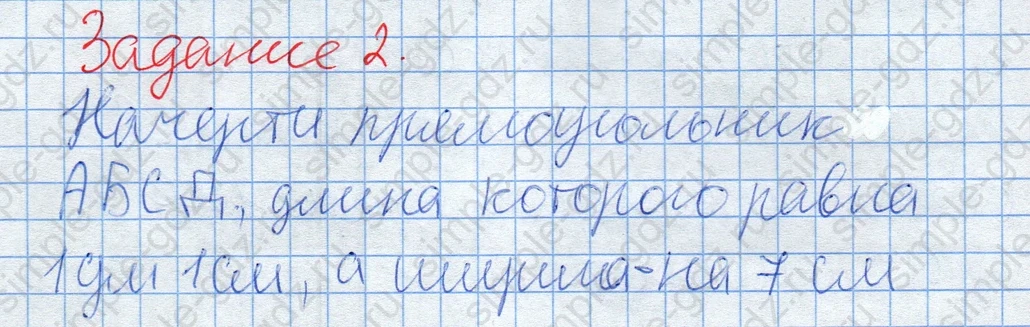 Задание 2.
Начерти прямоугольник
АБСД, длина которого равна
1дм 1см, а ширина-на 7 см